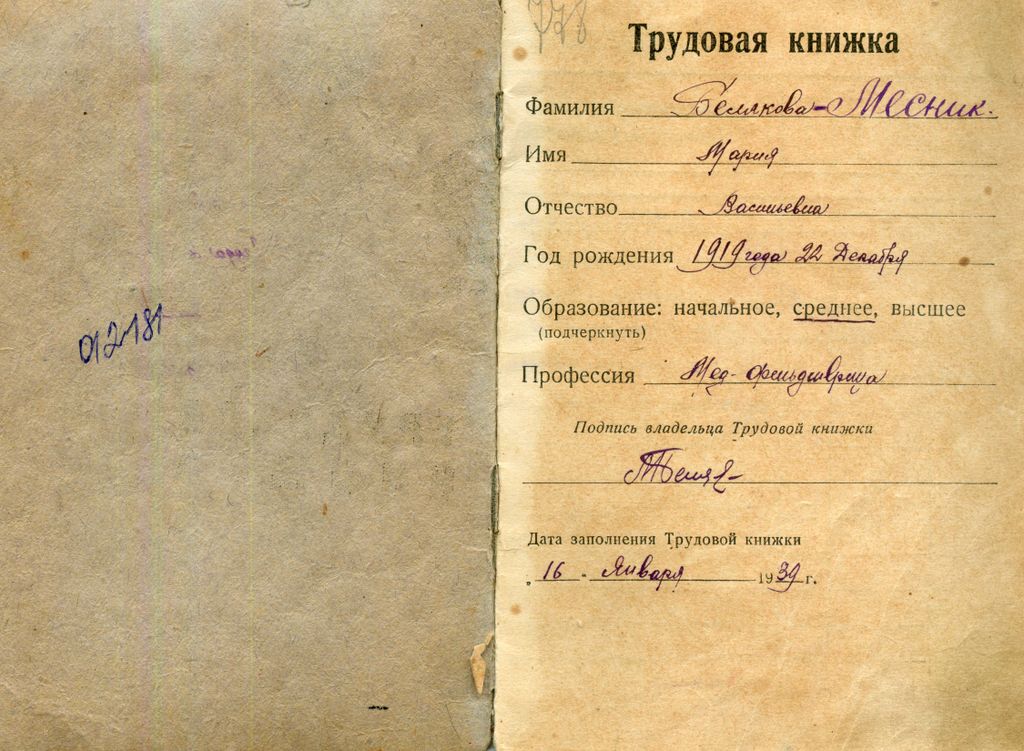 012181
778
Трудовая книжка
Фамилия Белякова-Месник.
Имя Мария
Отчество Васильевна
Год рождения 1919 года 22 Декабря
Образование: начальное, среднее, высшее
(подчеркнуть)
Профессия Мед-фельдшерица
Подпись владельца Трудовой книжки
Дата заполнения Трудовой книжки
„ 16 - Января 1939 г.